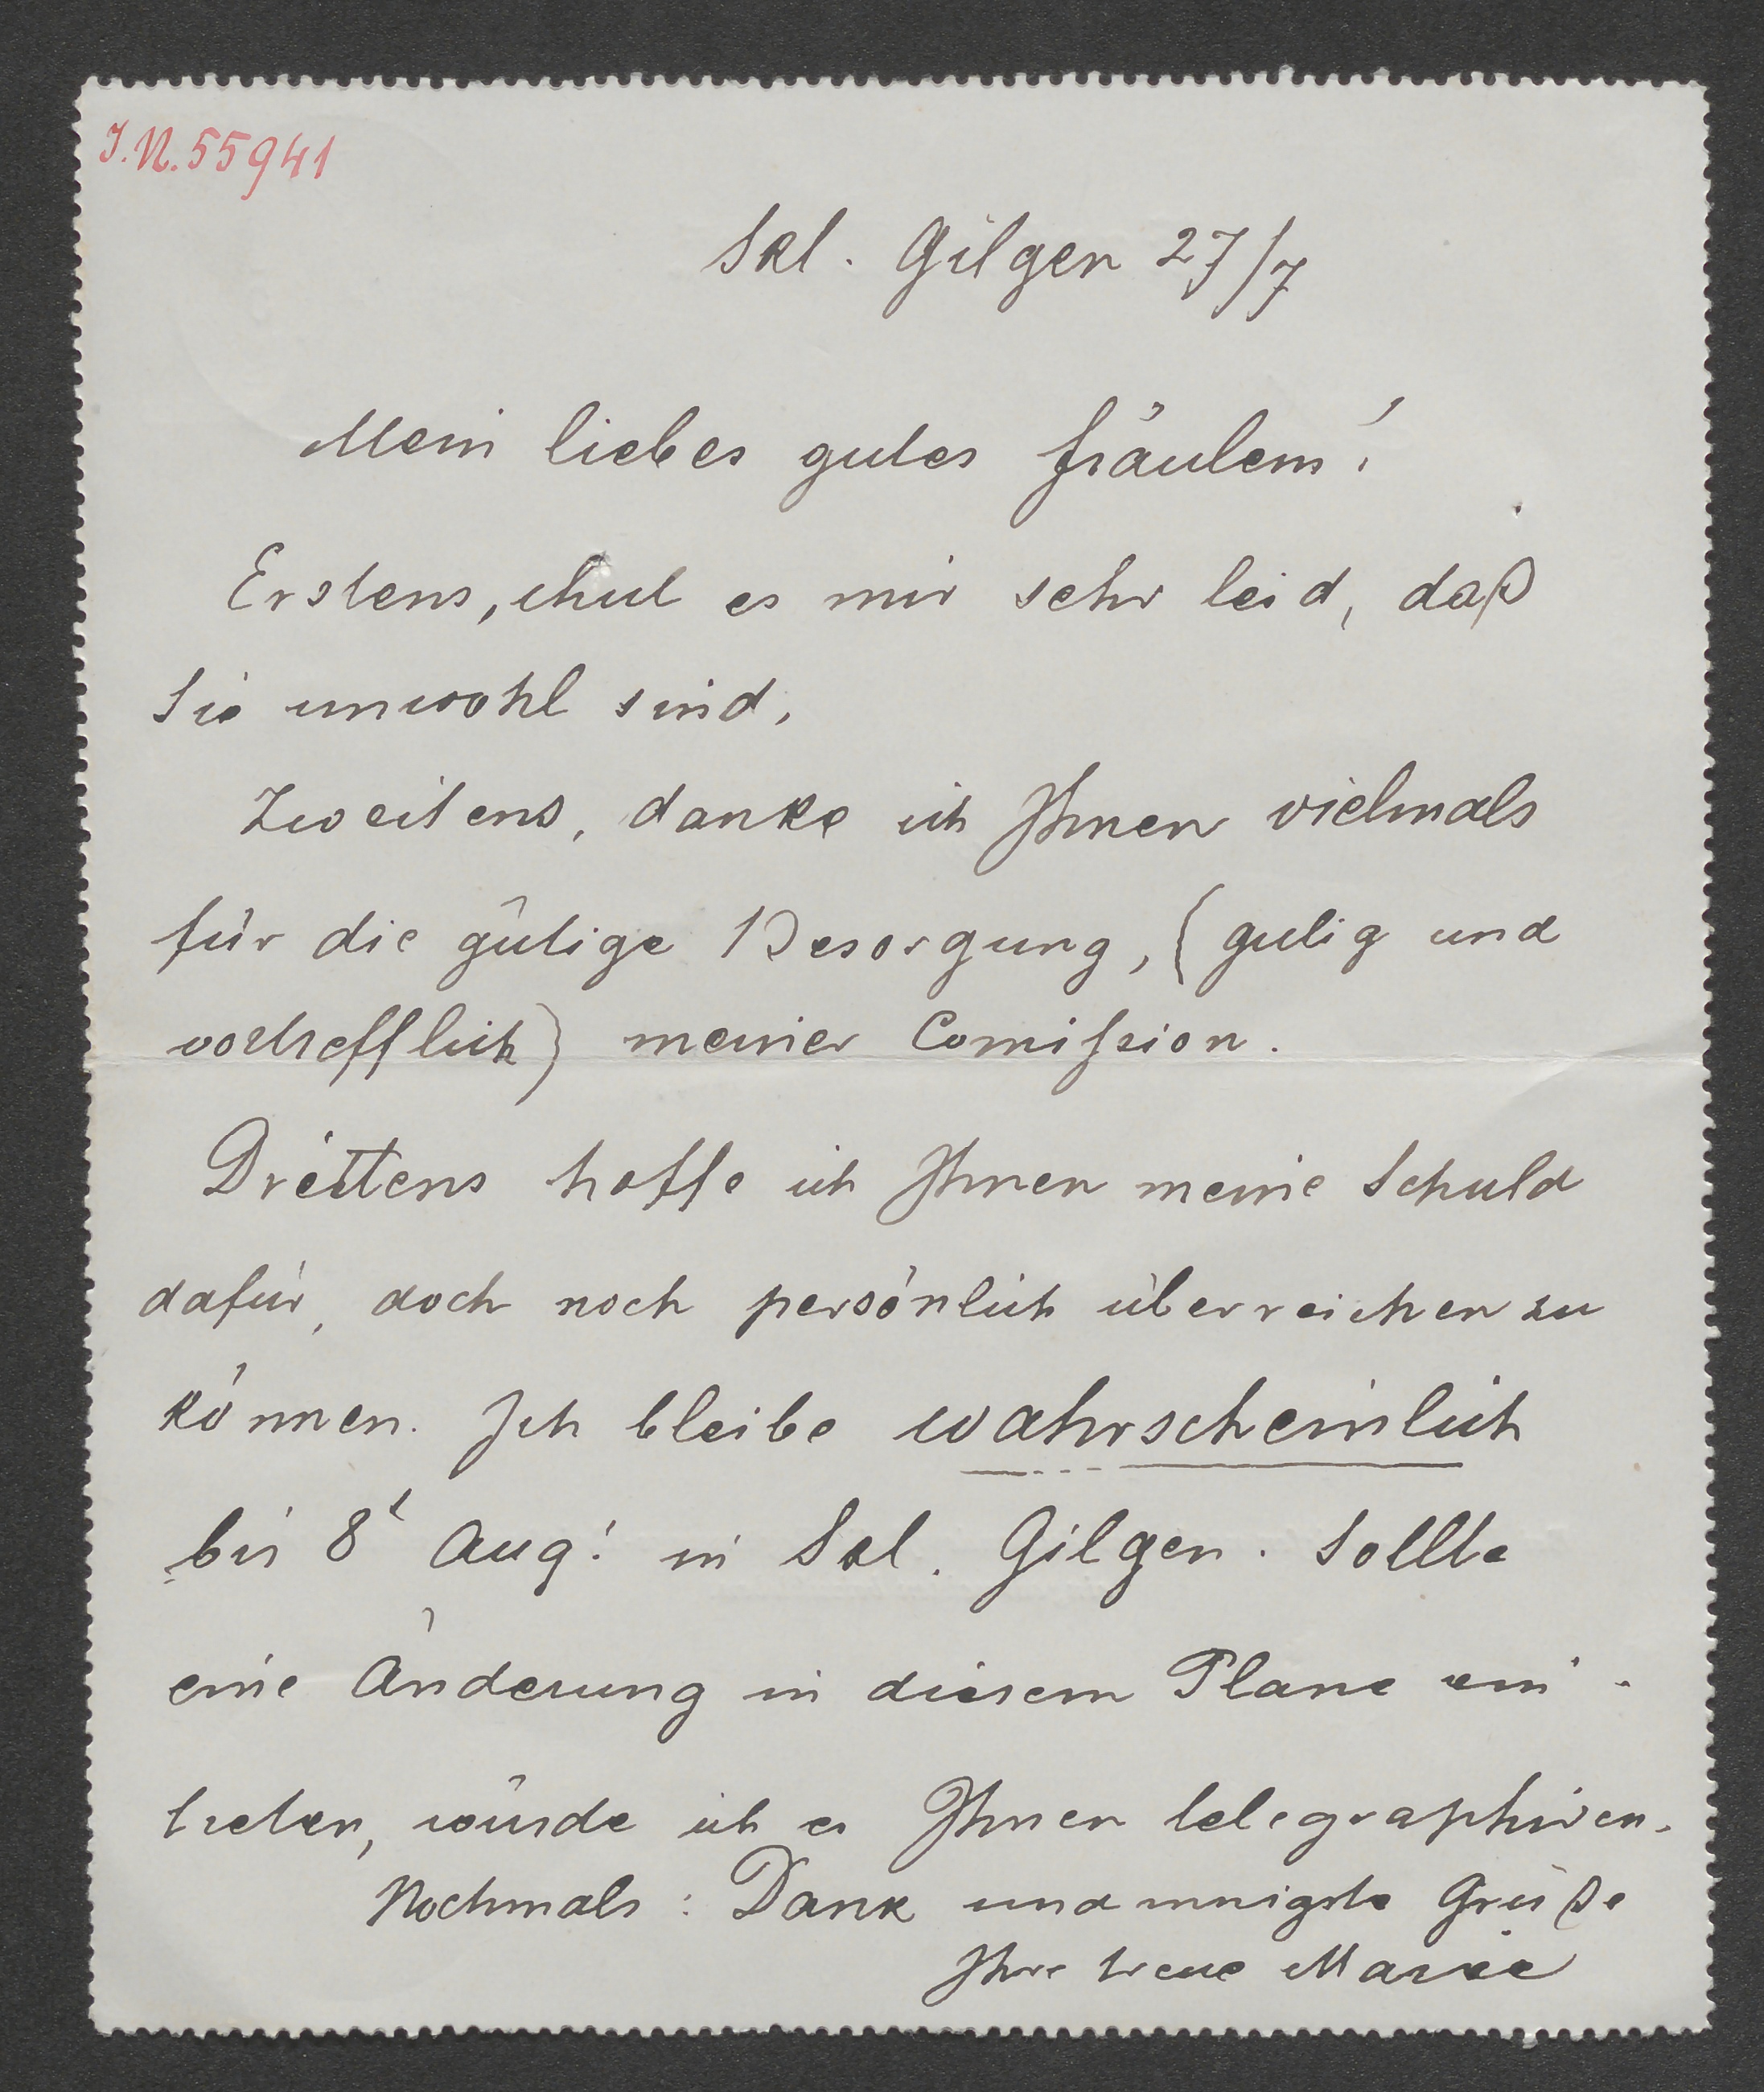 I.N. 55941
Skt. Gilgen 27/7
Mein liebes gutes Fräulein!
Erstens, thut es mir sehr leid, daß
Sie unwohl sind.
Zweitens, danke ich Ihnen vielmals
für die gütige Besorgung, (gutig und
vortrefflich) meiner Comission.
Drittens hoffe ich Ihnen meine Schuld
dafür, doch noch persönlich überreichen zu
können. Ich bleibe wahrscheinlich
bis 8t Aug: in Skt. Gilgen. Sollte
eine Änderung in diesem Plane ein-
treten, würde ich es Ihnen telegraphiren.
Nochmals: Dank und innigste Grüße
Ihre treue Marie